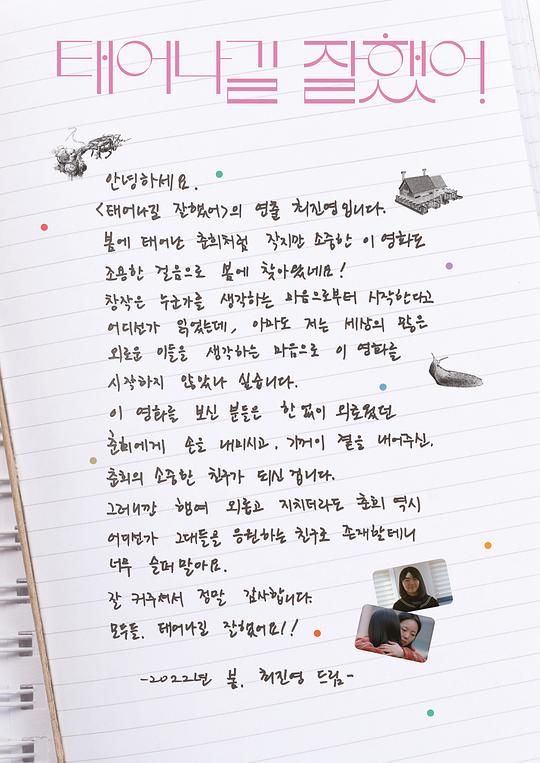 태어나길 잘했어!
안녕하세요.
<태어나길 잘했어>의 연출 최진영입니다.
봄에 태어난 춘희처럼 작지만 소중한 이 영화도
조용한 걸음으로 봄에 찾아왔네요!
창작은 누군가를 생각하는 마음으로부터 시작한다고
어디선가 읽었는데, 아마도 저는 세상의 많은
외로운 이들을 생각하는 마음으로 이 영화를
시작하지 않았나 싶습니다.
이 영화를 보신 분들은 한없이 외로웠던
춘희에게 손을 내미시고, 기꺼이 곁을 내어주신,
춘희의 소중한 친구가 되신 겁니다.
그러니깐 행여 외롭고 지치더라도 춘희 역시
어디선가 그대들을 응원하는 친구로 존재할테니
너무 슬퍼말아요.
잘 커주셔서 정말 감사합니다.
모두들, 태어나길 잘했어요!!
-2022년 봄, 최진영 드림-